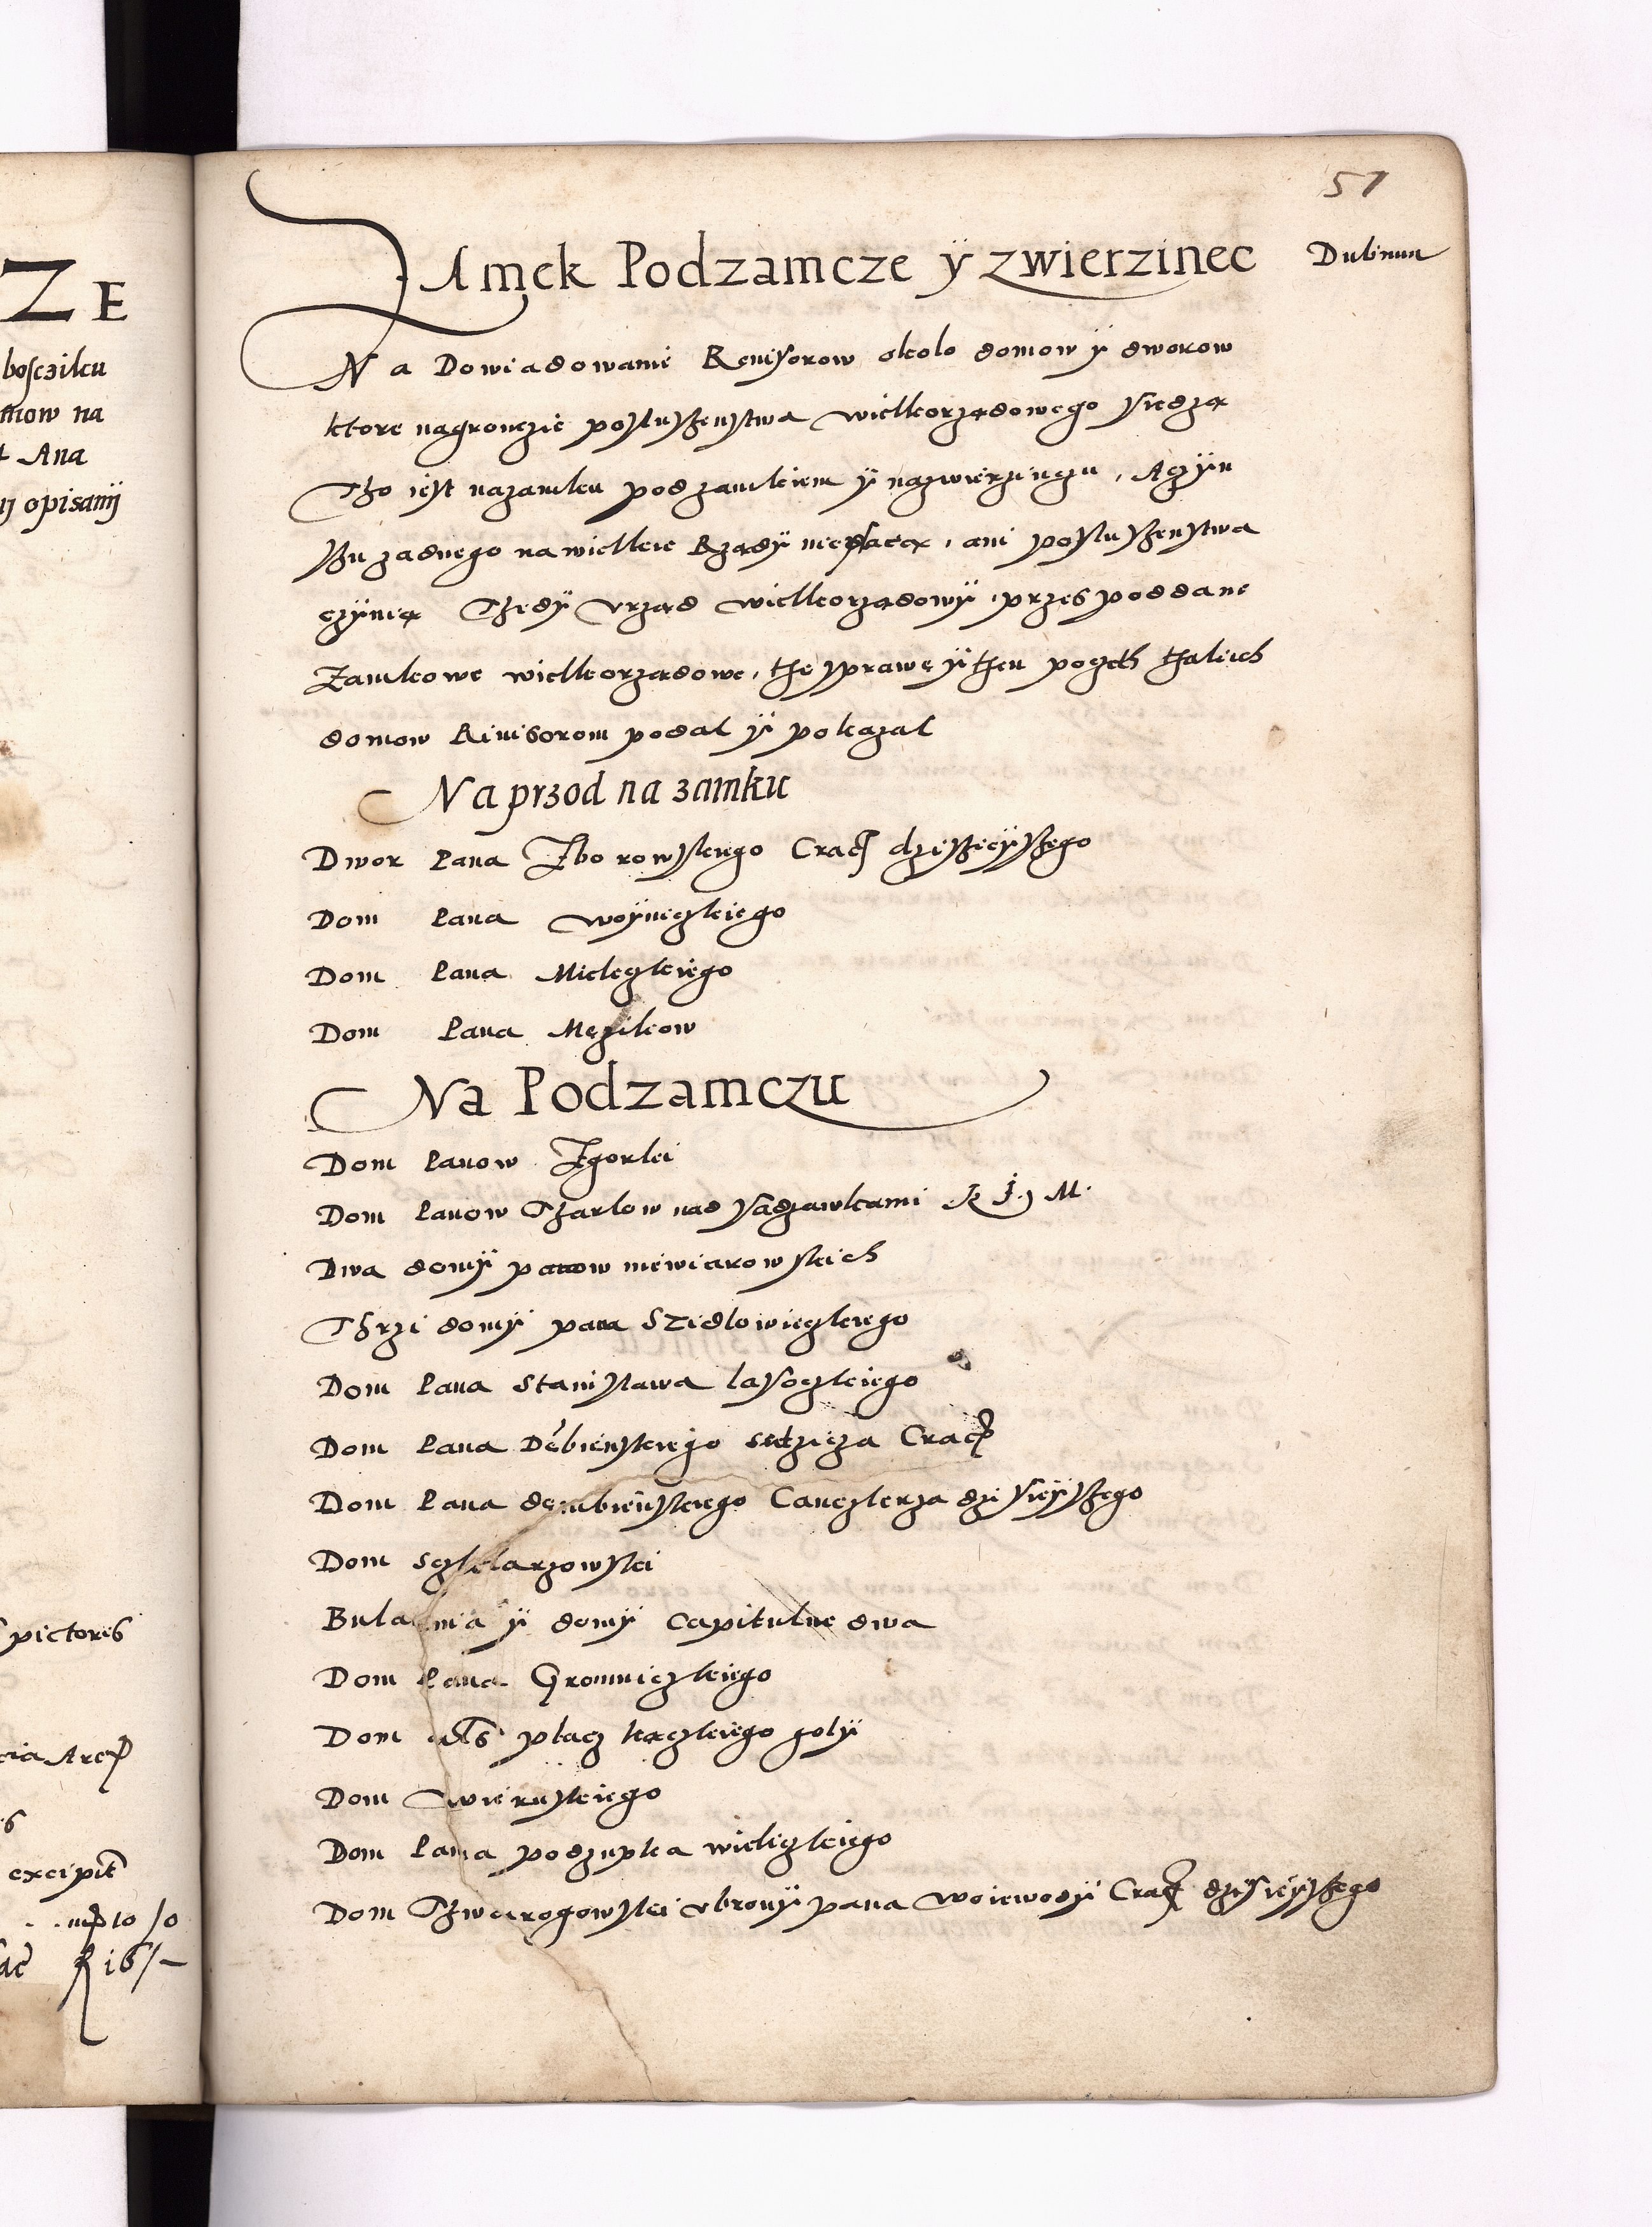 ZE
boſczilcu
mow na
Ana
opisanÿ
pictores
excipit
51
ZAmek Podzamcze ÿ zwierzinec
Dubium
Na Dowiadowanie Revisorow około domow ÿ dworow
ktore nagroncie posluszenstwa wielkorządowego siedzą
Tho iest nazamku podzamkiem ÿ nazwierzinczu, Aczÿn
szu zadnego nawielkie Rządÿ nieplaczą, ani posluszenstwa
czÿnią Thedÿ Vrząd wielkorządowÿ, przes poddane
Zamkowe wielkorządowe, the sprawę ÿ then poczeth thakich
domow Revisorom podal ÿ pokazal
Na przod na zamku
Dwor Pana Zborowskiego Crac dziszieÿszego
Dom Pana woÿniczkiego
Dom Pana Mieleczkiego
Dom Pana Mężikow
Na Podzamczu
Dom Panow Zgorki
Dom Panow Tharlow nad sadzawkami K J M.
Dwa domÿ panow niewiarowskich
Thrzi domÿ pana Szidlowieczkiego
Dom Pana Stanislawa lasoczkiego
Dom Pana Dębienskiego sędzicza Crac
Dom Pana dembienskiego Canczlerza dzisieÿszego
Dom Szklarzowski
ÿ domÿ Capitulne dwa
Dom Pana Gromniczkiego
Dom als placz kączkiego golÿ
Dom wieruskiego
Dom Pana podzupka wieliczkiego
Dom Thwarogowski vbronÿ pana woiewodÿ Crac dzisieÿszego